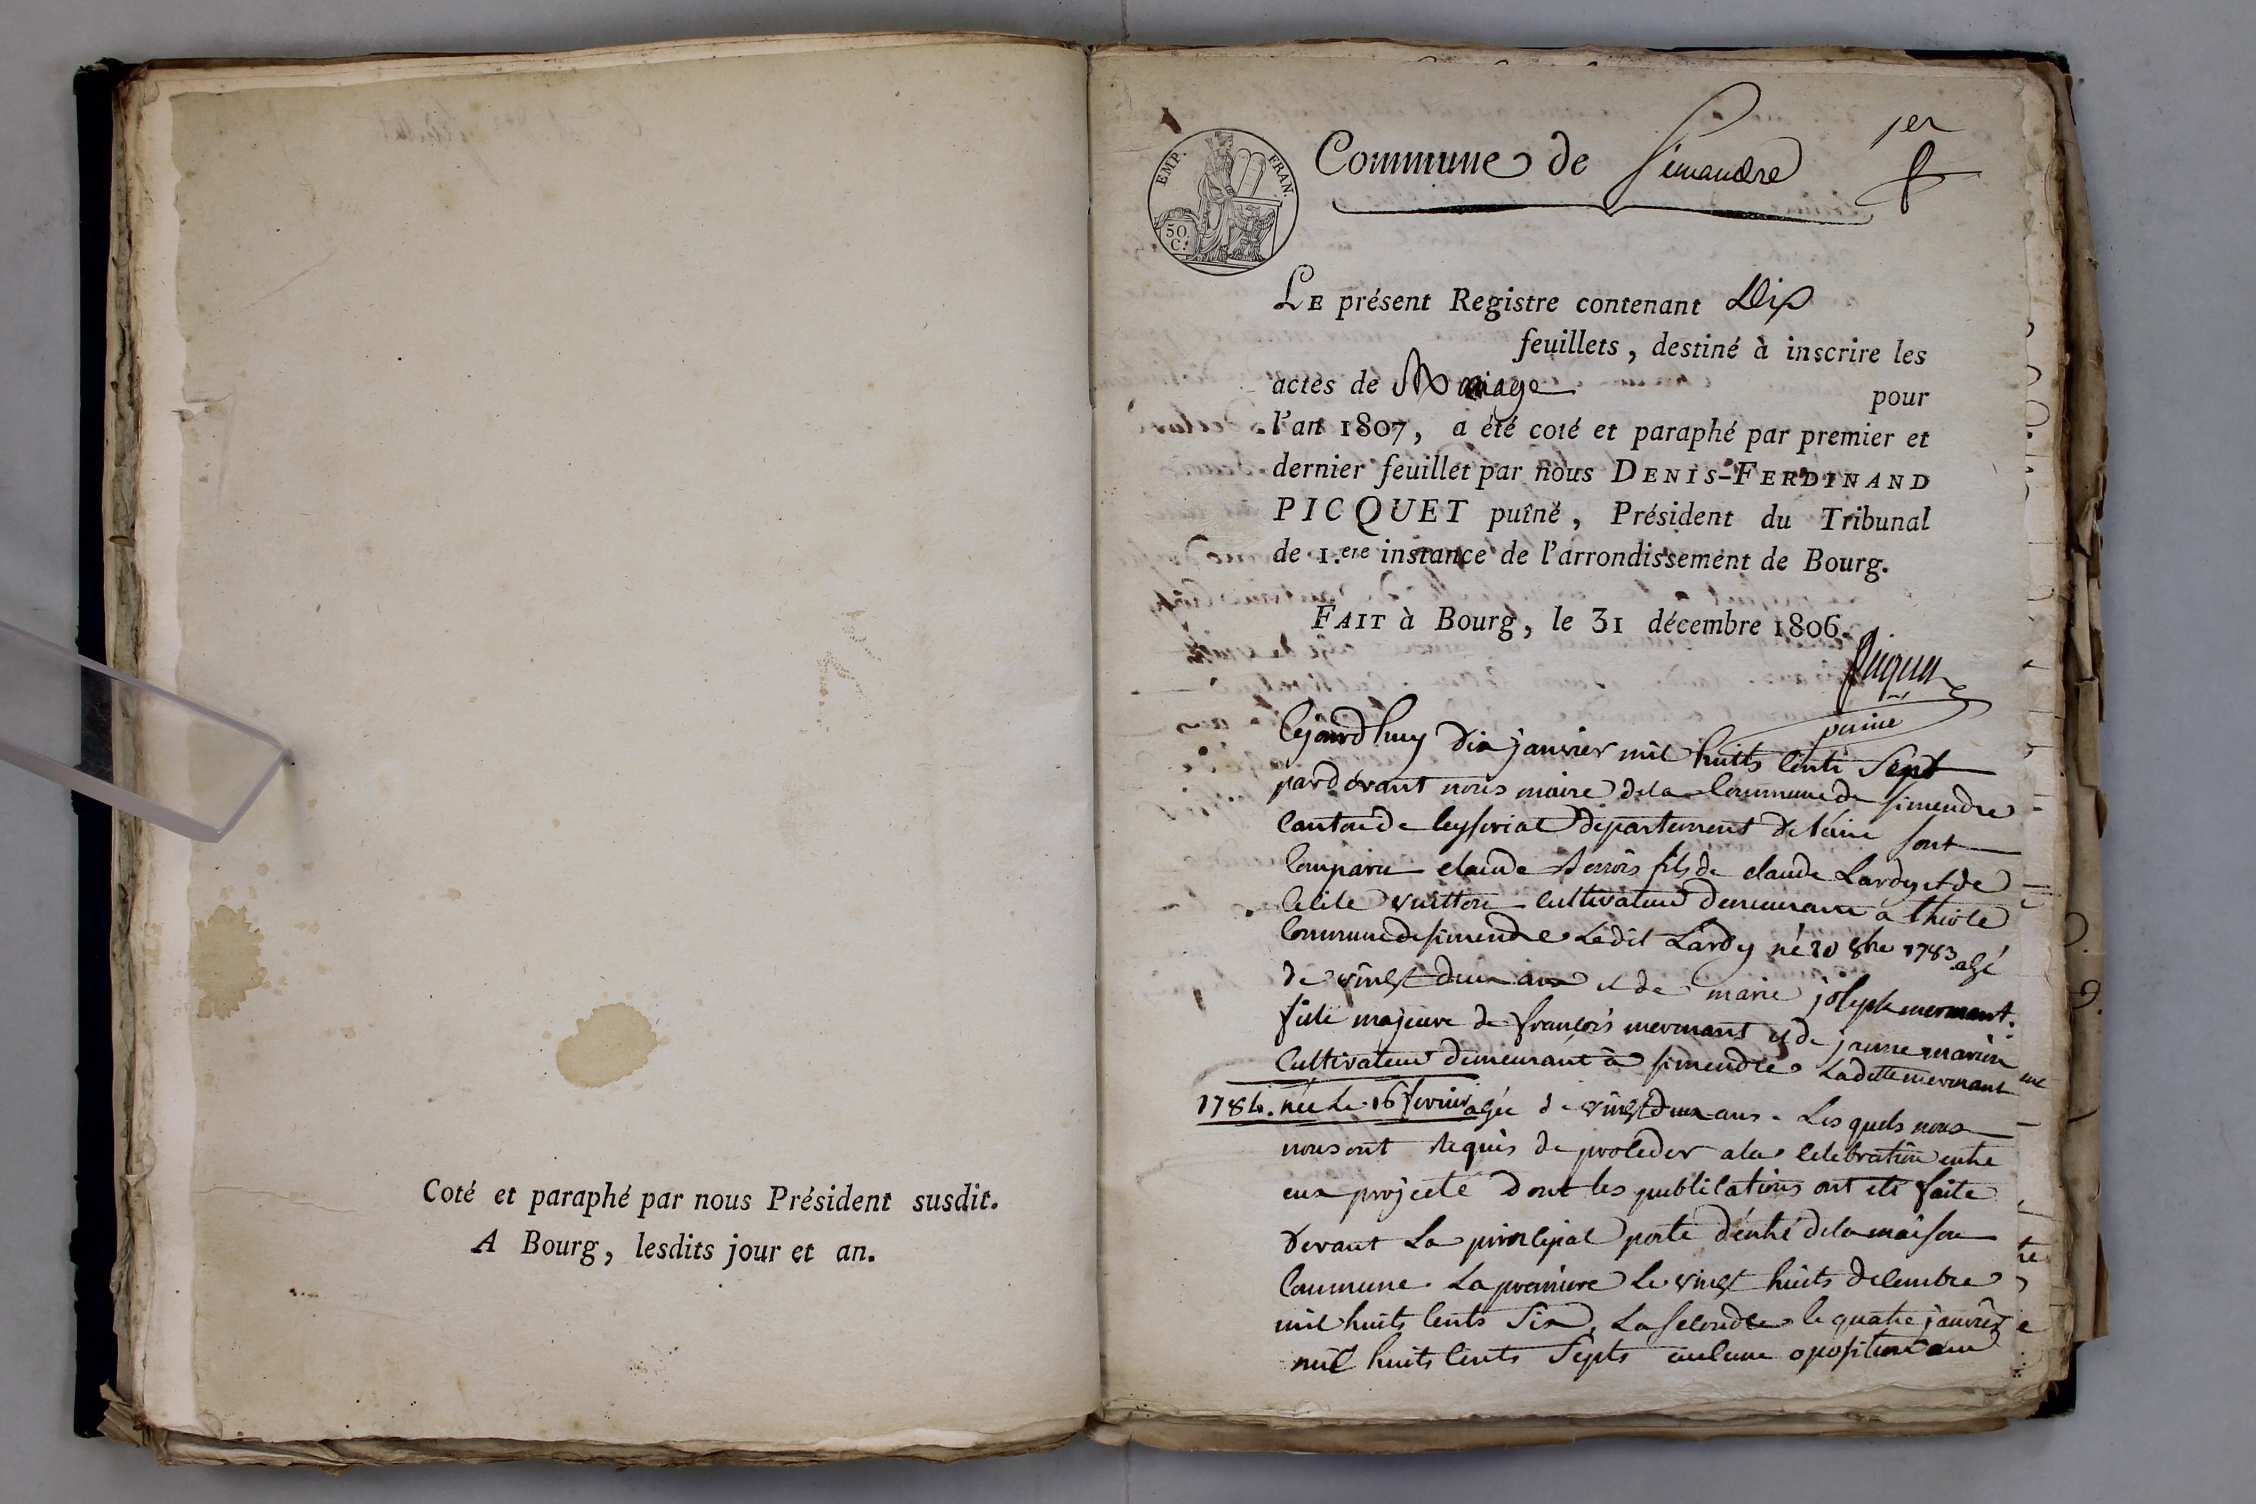 Coté et paraphé par nous Président susdit.
A Bourg, lesdits jour et an.
EMP. FRAN.
50
C.
1er
Commune de Simandre
LE présent Registre contenant Dix
feuillets, destiné à inscrire les
actes de Mariage pour
l'an 1807, a été coté et paraphé par premier et
dernier feuillet par nous DENIS-FERDINAND
PICQUET puîné, Président du Tribunal
de 1.ere instance de l'arrondissement de Bourg.
FAIT à Bourg, le 31 décembre 1806.
Picquet
puiné
Cejourdhuy dix janvier mil huits cents Sept
pardevant nous maire dela Commune de simendre
Canton de Ceyseriat département de l'ain sont
Comparu claude fils de claude Lardy et de
vuitton cultivateur demeurant a
Commune de simendre Ledit Lardy né 20 8bre 1783 agé
de vingt deux ans et de marie joseph mermant
fille majeure de françois mermant et de janne marion
Cultivateur demeurant à simendre Laditte mermant
1784. née le 16 fevrier agée de vingt deux ans. Les quels nous
nous ont requis de proceder a la celebration entre
eux projeté dont les publications ont eté faite
devant La principal porte d'entré dela maison
Commune. La premiere le vingt huits decembre
mil huits cents Six, La seconde le quatre janvier
mil huits cents Septs aucune oposition au